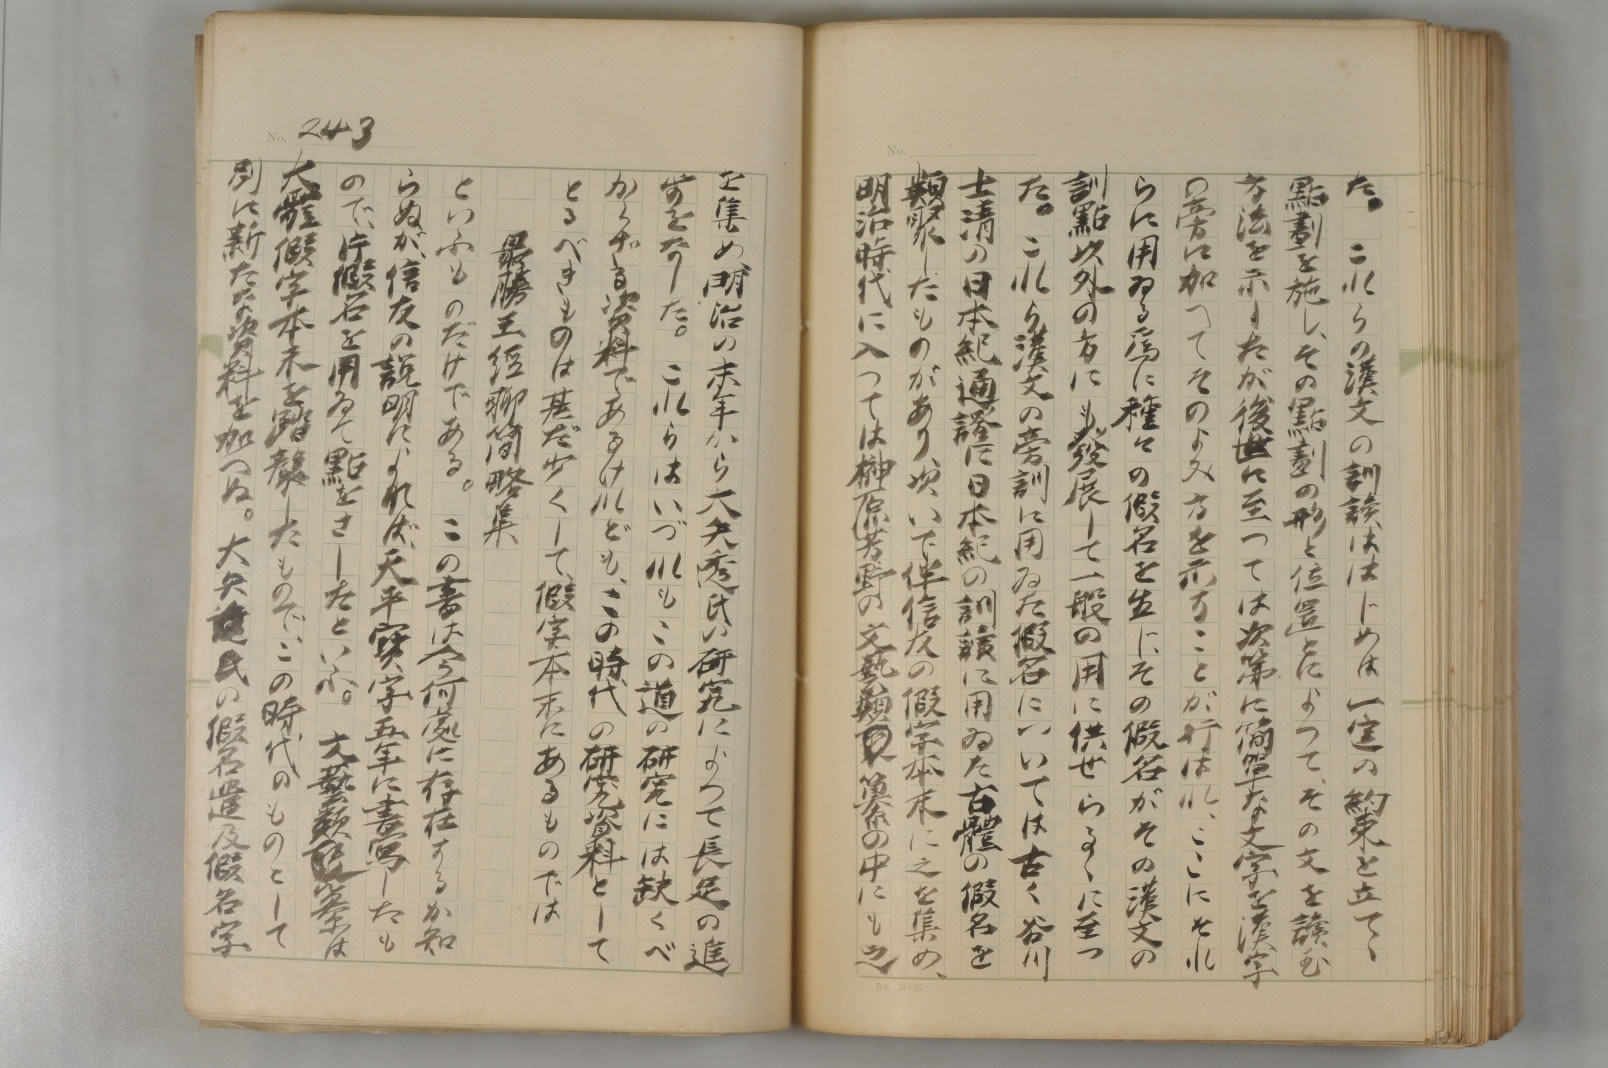 た。これらの漢文の訓讀ははじめは一定の約束を立てゝ
點劃を施し、その點劃の形と位置とによつて、その文を讀む
方法を示したが後世に至つては次第に簡單な文字を漢字
の旁に加へてそのよみ方を示すことが行はれ、ここにそれ
らに用ゐる爲に種々の假名を生じその假名がその漢文の
訓點以外の方にも發展して一般の用に供せらるゝに至つ
た。これら漢文の旁訓に用ゐた假名については古く谷川
士清の日本紀通證に日本紀の訓讀に用ゐた古體の假名を
類聚したものがあり、次いで伴信友の假字本末に之を集め、
明治時代に入つては榊原芳野の文藝類纂の中にも之
No. 243
を集め明治の末年から大矢透氏の研究によつて長足の進
歩をなした。これらはいづれもこの道の研究には缺くべ
からざる資料であるけれども、この時代の研究資料として
とるべきものは甚だ少くして、假字本末にあるものでは
最勝王經聊簡略集
といふものだけである。この書は今何處に存在するか知
らぬが、信友の説明によれば、天平寶字五年に書寫したも
ので、片假名を用ゐて點をさしたといふ。文藝類纂は
大體假字本末を踏襲したもので、この時代のものとして
別に新たな資料を加へぬ。大矢透氏の假名遣及假名字
No.